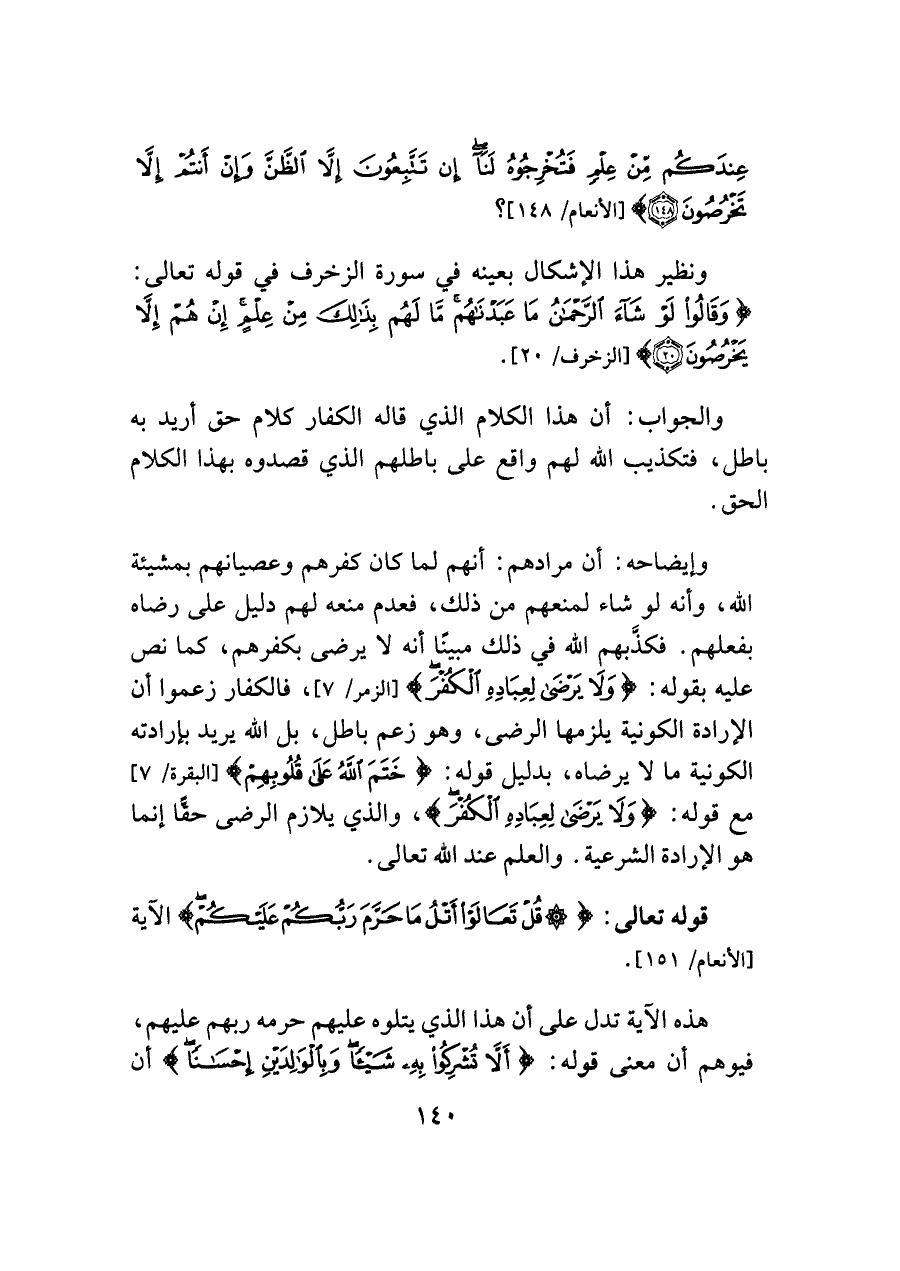 عِندَكُم مِّنْ عِلْمٍ فَتُخْرِجُوهُ لَنَا ۖ إِن تَتَّبِعُونَ إِلَّا ٱلظَّنَّ وَإِنْ أَنتُمْ إِلَّا
تَخْرُصُونَ ﴿١٤٨﴾﴾ [الأنعام/ ١٤٨]؟
ونظير هذا الإشكال بعينه في سورة الزخرف في قوله تعالى:
﴿وَقَالُوا۟ لَوْ شَآءَ ٱلرَّحْمَٰنُ مَا عَبَدْنَٰهُم ۗ مَّا لَهُم بِذَٰلِكَ مِنْ عِلْمٍ ۖ إِنْ هُمْ إِلَّا
يَخْرُصُونَ ﴿٢٠﴾﴾ [الزخرف/ ٢٠].
والجواب: أن هذا الكلام الذي قاله الكفار كلام حق أريد به
باطل، فتكذيب الله لهم واقع على باطلهم الذي قصدوه بهذا الكلام
الحق.
وإيضاحه: أن مرادهم: أنهم لما كان كفرهم وعصيانهم بمشيئة
الله، وأنه لو شاء لمنعهم من ذلك، فعدم منعه لهم دليل على رضاه
بفعلهم. فكذَّبهم الله في ذلك مبينًا أنه لا يرضى بكفرهم، كما نص
عليه بقوله: ﴿وَلَا يَرْضَىٰ لِعِبَادِهِ ٱلْكُفْرَ ۖ﴾ [الزمر/ ٧]، فالكفار زعموا أن
الإرادة الكونية يلزمها الرضى، وهو زعم باطل، بل الله يريد بإرادته
الكونية ما لا يرضاه، بدليل قوله: ﴿خَتَمَ ٱللَّهُ عَلَىٰ قُلُوبِهِمْ﴾ [البقرة/ ٧]
مع قوله: ﴿وَلَا يَرْضَىٰ لِعِبَادِهِ ٱلْكُفْرَ ۖ﴾، والذي يلازم الرضى حقًّا إنما
هو الإرادة الشرعية. والعلم عند الله تعالى.
قوله تعالى: ﴿۞ قُلْ تَعَالَوْا۟ أَتْلُ مَا حَرَّمَ رَبُّكُمْ عَلَيْكُمْ ۖ﴾ الآية
[الأنعام/ ١٥١].
هذه الآية تدل على أن هذا الذي يتلوه عليهم حرمه ربهم عليهم،
فيوهم أن معنى قوله: ﴿أَلَّا تُشْرِكُوا۟ بِهِۦ شَيْـًٔا ۖ وَبِٱلْوَٰلِدَيْنِ إِحْسَٰنًا ۖ﴾ أن
١٤٠